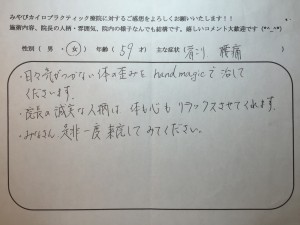 みやびカイロプラクティック療院に対するご感想をよろしくお願いいたします!!
施術内容、院長の人柄・雰囲気、院内の様子なんでも結構です。嬉しいコメント大歓迎です(*^_^*)
性別(男・女) 年齢(59才) 主な症状(肩こり 腰痛)
・日々気がつかない体の歪みをhand magicで治して
くださいます。
・院長の誠実な人柄は体も心もリラックスさせてくれます。
・みなさん、是非一度来院してみてください。